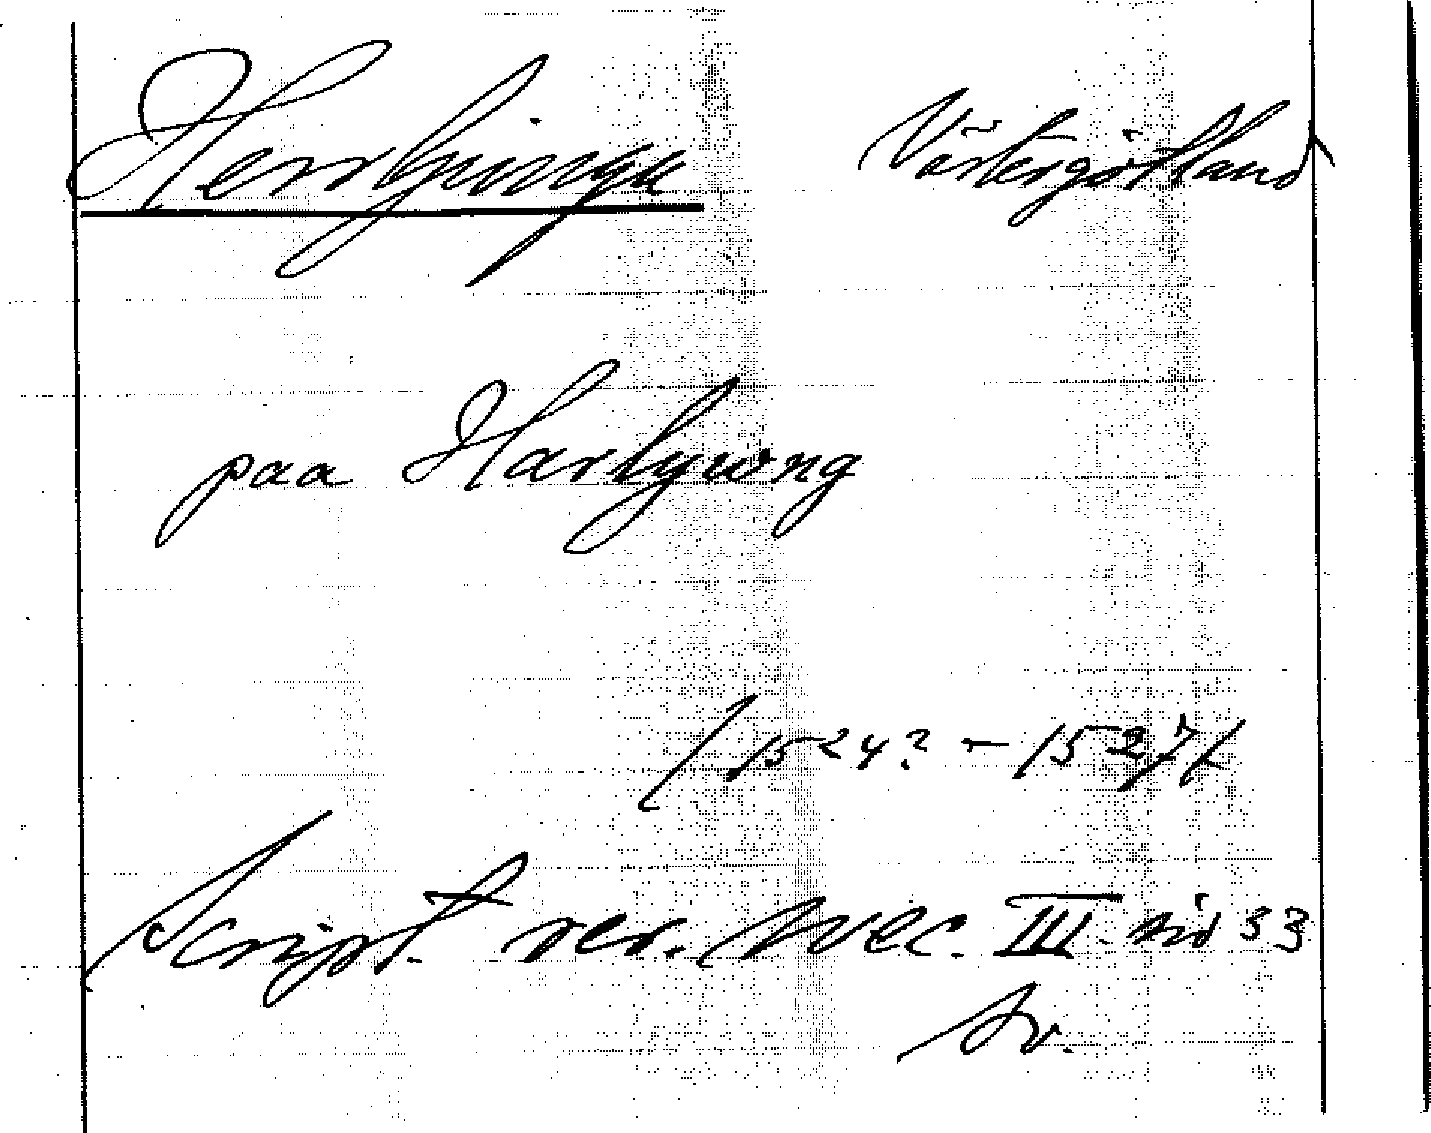 Herrljunga Västergötland
paa Harlywng
(1524? - 1527)
Script. rer. svec. III. sid 33